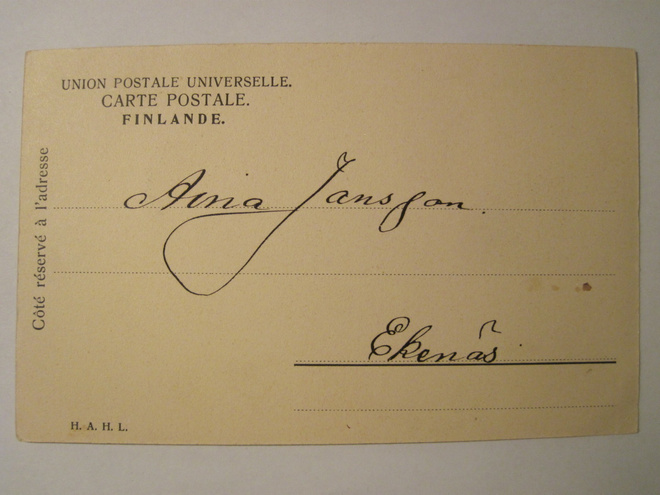 UNION POSTALE UNIVERSELLE.
CARTE POSTALE.
FINLANDE.
Côté réservé à l'adresse
Aina Jansson.
Ekenäs
H. A. H. L.